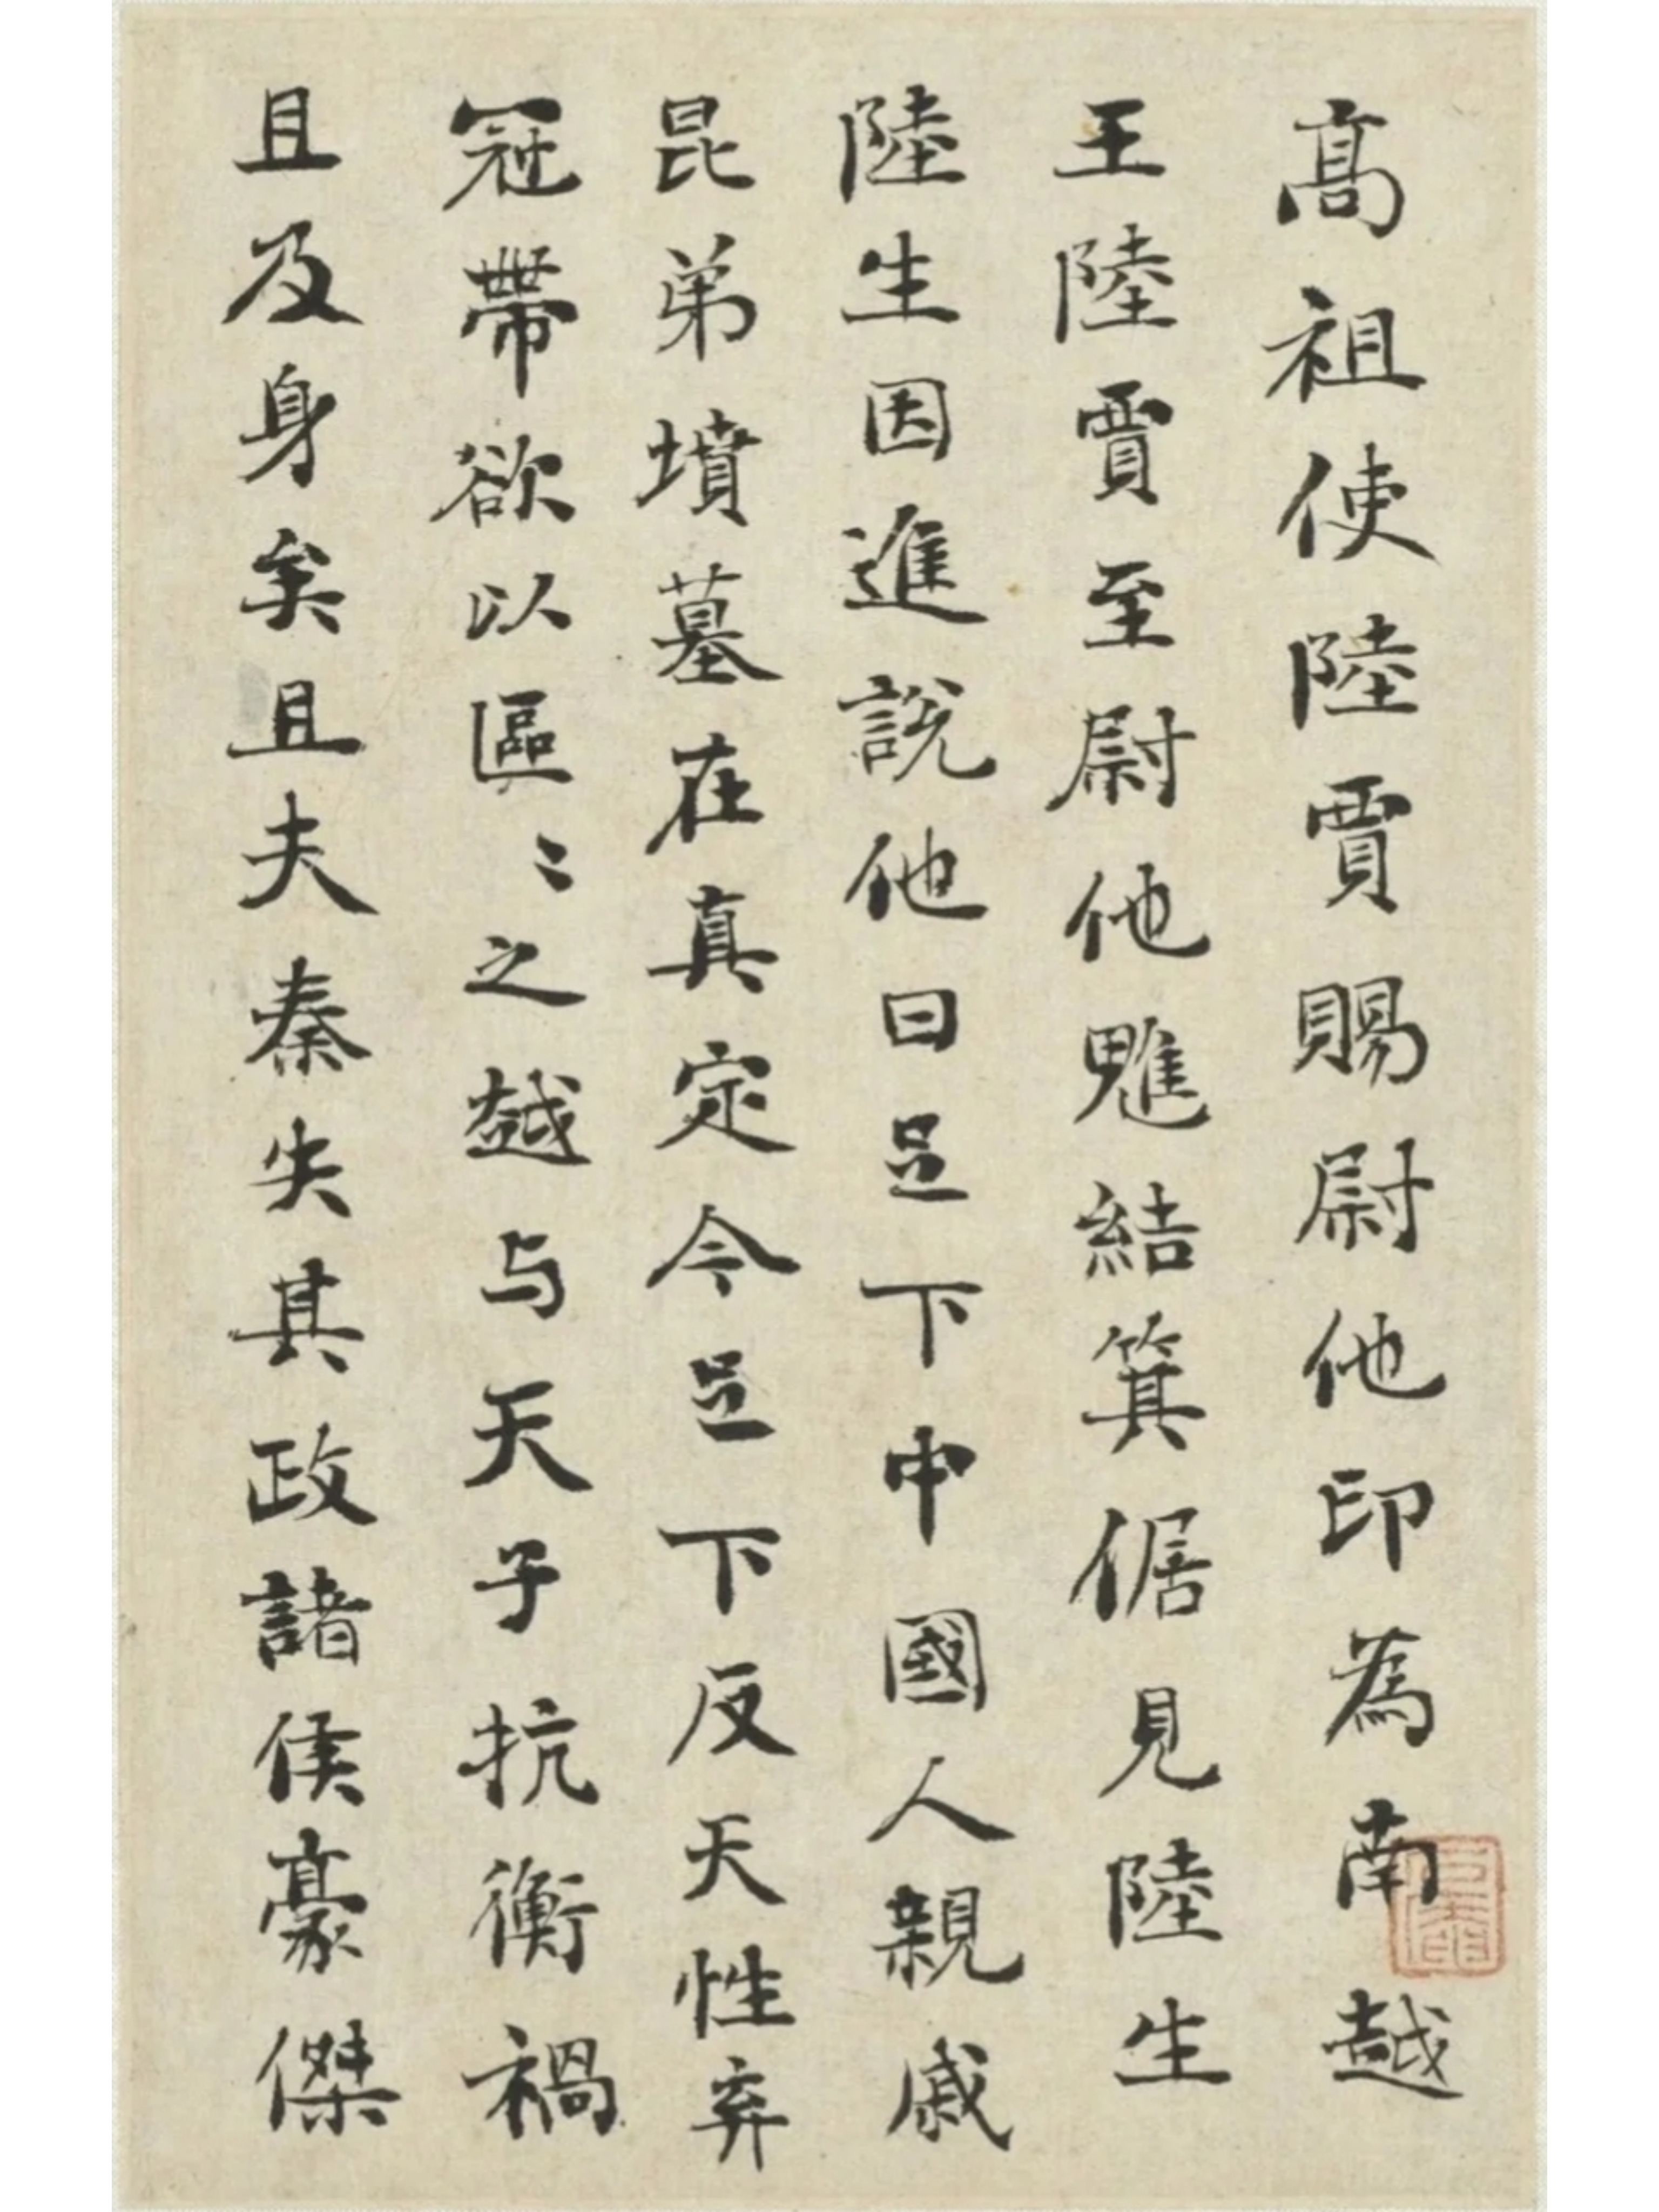 高祖使陸賈賜尉他印為南越
王陸賈至尉他魋結箕倨見陸生
陸生因進說他曰足下中國人親戚
昆弟墳墓在真定今足下反天性弃
冠帶欲以區〻之越与天子抗衡禍
且及身矣且夫秦失其政諸侯豪傑